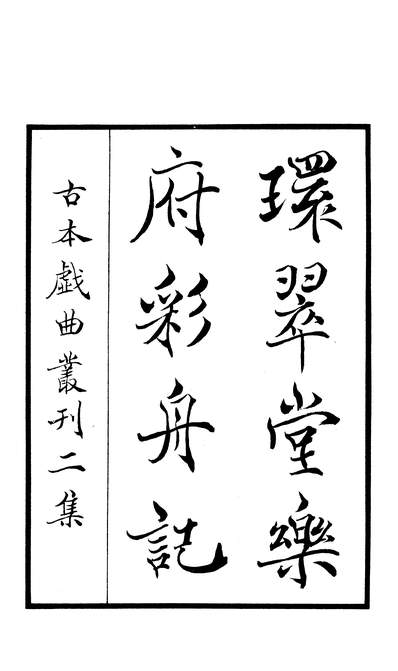 環翠堂樂
府彩舟記
古本戯曲叢刊二集